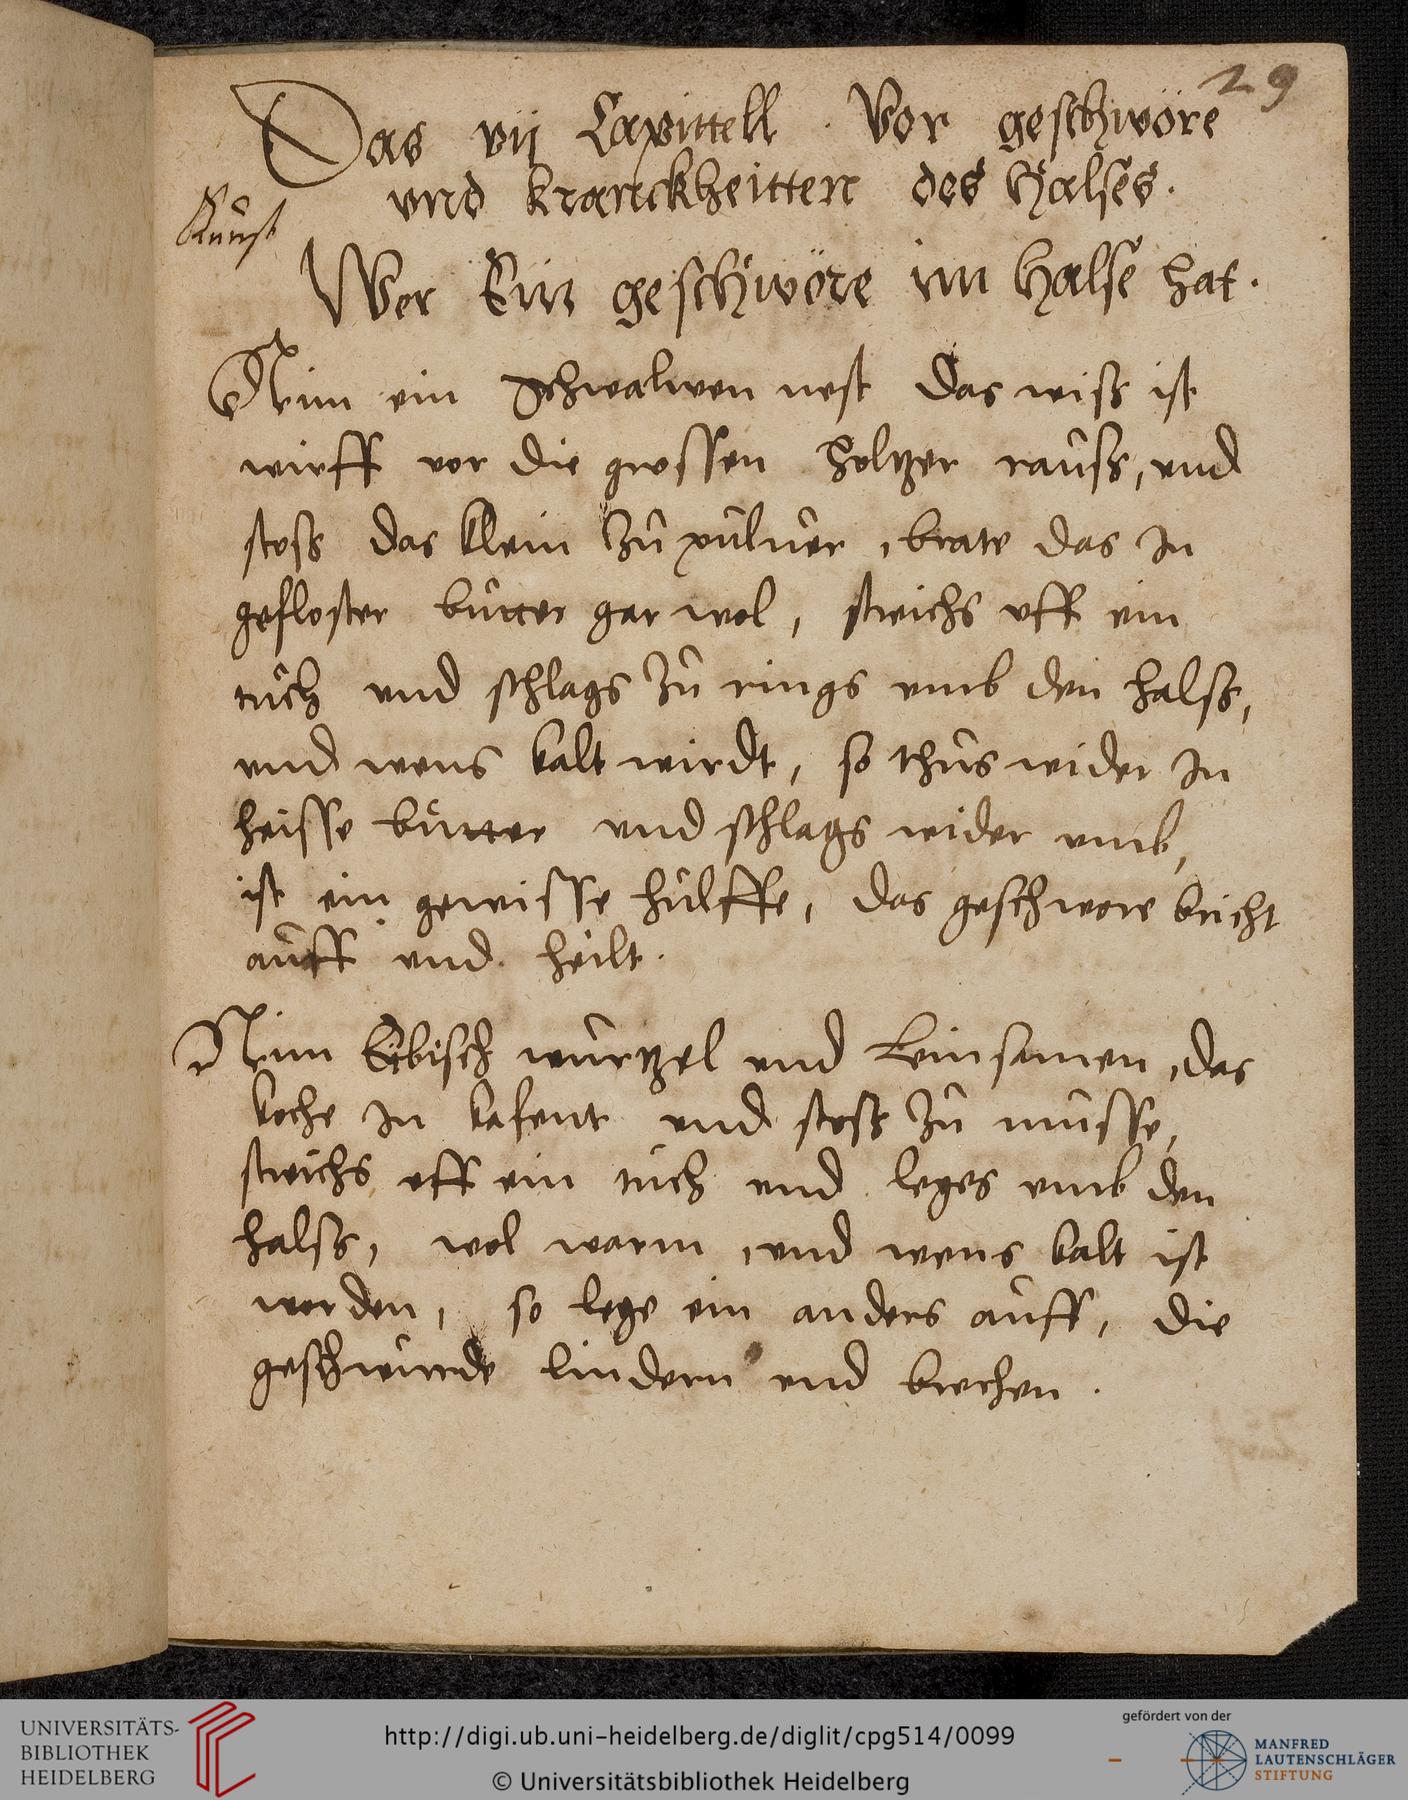 29
Das vij Capittell Vor geschwöre
vnd kranckheitten des halses.
Kunst
Wer Ein geschwöre im halse hat.
Nim ein schwalwen nest das wiss ist
wirff vor die grossen holtzer rauss, vnd
stoss das klein zu puluer, brate das In
gefloster butter gar wol, streichs vff ein
tuch vnd schlags zu rings vmb den halss,
vnd wens kalt wirdt, so thus wider In
heisse butter vnd schlags wider vmb,
ist ein gewisse hulffe, das geschwore bricht
auff vnd heilt.
Nim Eibisch wurtzel vnd Leinsamen, das
koche In kofent vnd stoss zu musse,
streichs vff ein tuch vnd leges vmb den
halss, wol warm, vnd wens kalt ist
worden, so lege ein anders auff, die
geschwurde lindern vnd brechen.
UNIVERSITÄTS-
BIBLIOTHEK
HEIDELBERG
http://digi.ub.uni-heidelberg.de/diglit/cpg514/0099
© Universitätsbibliothek Heidelberg
gefördert von der
MANFRED
LAUTENSCHLÄGER
STIFTUNG